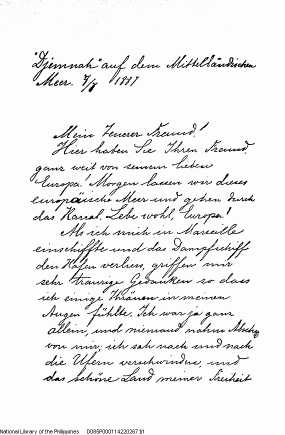 "Djemnah" auf dem Mittelländischen
Meer. 4/7 1887
Mein Teuerer Freund!
Hier haben Sie Ihren Freund,
ganz weit von seinem lieben
Europa! Morgen lassen wir dieses
europäische Meer und gehen durch
das Kanal. Lebe wohl, Europa!
Als ich mich in Marseille
einschiffte und das Dampfschiff
den Hafen verliess, griffen mir
sehr traurige Gedanken so dass
ich einige Thränen in meinen
Augen fühlte. Ich war ja ganz
allein, und niemand nahm Abschied
von mir; ich sah nach und nach
die Ufern verschwinden, und
das schöne Land meiner Freiheit
National Library of the Philippines